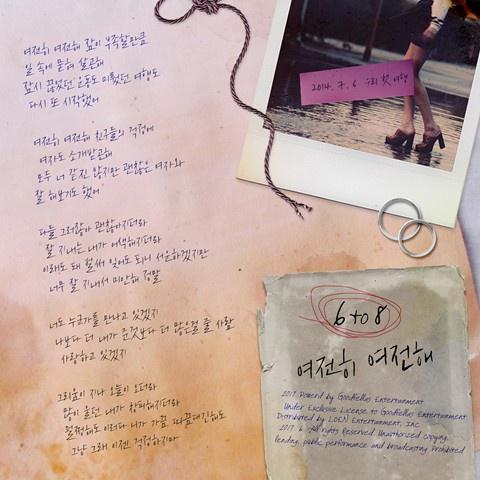 여전히 여전해 잠이 부족할만큼
일 속에 묻혀 살곤해
잠시 끊었던 운동도 미뤘던 여행도
다시 또 시작했어
여전히 여전해 친구들의 걱정에
여자도 소개받곤해
모두 너 같진 않지만 괜찮은 여자와
잘 해보기도 했어
다들 그러잖아 괜찮아지더라
잘 지내는 내가 어색해지더라
이래도 돼 벌써 잊어도 되니 서운하겠지만
너무 잘 지내서 미안해 정말
너도 누군가를 만나고 있겠지
나보다 더 내가 준것보다 더 많은걸 줄 사람
사랑하고 있겠지
그리움이 지나 오늘이 오더라
많이 울던 내가 창피해지더라
멀쩡해도 이러다 내가 가끔 따끔대긴해도
그냥 그래 이젠 걱정하지마
2014. 7. 6 우리 첫 여행
6 to 8
여전히 여전해
2017. Powerd by Goodfellas Entertainment
Under Exclusive License to Goodfellas Entertainment
Distributed by LOEN Entertainment, Inc
2017. 6. All rights Reserved. Unauthorized copying,
lending, public performance and broadcasting Prohibited